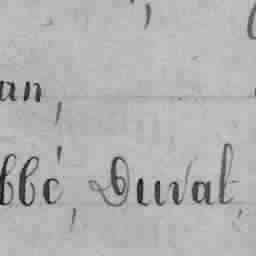 an,
bbé, Duval,